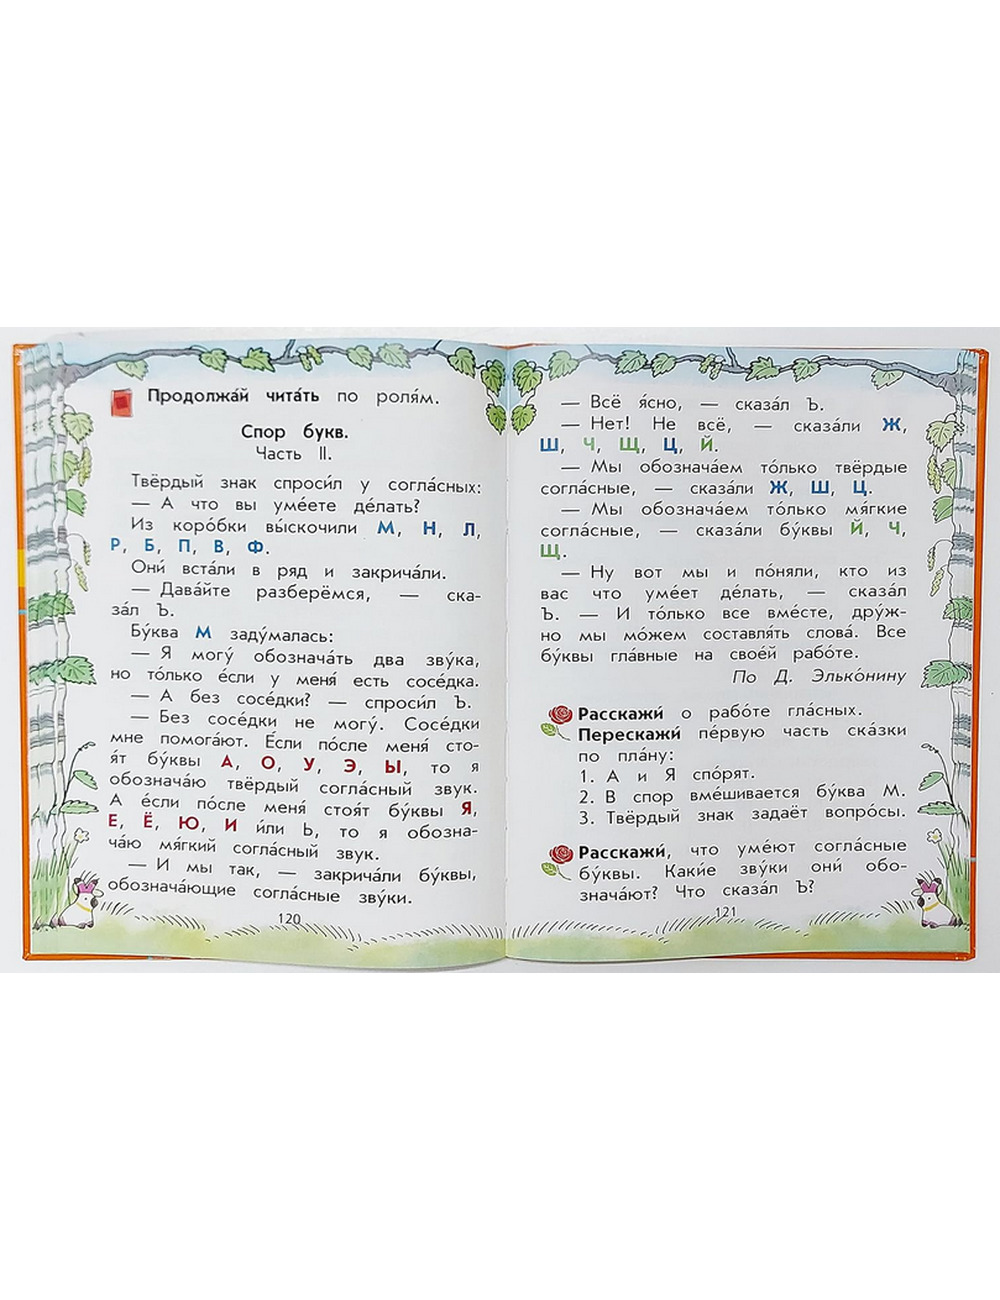 Продолжа́й чита́ть по роля́м.
Спор букв.
Часть II.
Твёрдый знак спроси́л у согла́сных:
— А что вы уме́ете де́лать?
Из коро́бки вы́скочили М, Н, Л,
Р, Б, П, В, Ф.
Они́ вста́ли в ряд и закрича́ли.
— Дава́йте разберёмся, — ска-
за́л Ъ.
Бу́ква М заду́малась:
— Я могу́ обознача́ть два зву́ка,
но то́лько е́сли у меня́ есть сосе́дка.
— А без сосе́дки? — спроси́л Ъ.
— Без сосе́дки не могу́. Сосе́дки
мне помога́ют. Е́сли по́сле меня́ сто-
я́т бу́квы А, О, У, Э, Ы, то я
обознача́ю твёрдый согла́сный звук.
А е́сли по́сле меня́ стоя́т бу́квы Я,
Е, Ё, Ю, И и́ли Ь, то я обозна-
ча́ю мя́гкий согла́сный звук.
— И мы так, — закрича́ли бу́квы,
обознача́ющие согла́сные зву́ки.
120
— Всё я́сно, — сказа́л Ъ.
— Нет! Не всё, — сказа́ли Ж,
Ш, Ч, Щ, Ц, Й.
— Мы обознача́ем то́лько твёрдые
согла́сные, — сказа́ли Ж, Ш, Ц.
— Мы обознача́ем то́лько мя́гкие
согла́сные, — сказа́ли бу́квы Й, Ч,
Щ.
— Ну вот мы и по́няли, кто из
вас что уме́ет де́лать, — сказа́л
Ъ. — И то́лько все вме́сте, дру́ж-
но мы мо́жем составля́ть слова́. Все
бу́квы гла́вные на свое́й рабо́те.
По Д. Элько́нину
Расскажи́ о рабо́те гла́сных.
Перескажи́ пе́рвую часть ска́зки
по пла́ну:
1. А и Я спо́рят.
2. В спор вме́шивается бу́ква М.
3. Твёрдый знак задаёт вопро́сы.
Расскажи́, что уме́ют согла́сные
бу́квы. Каки́е зву́ки они́ обо-
знача́ют? Что сказа́л Ъ?
121